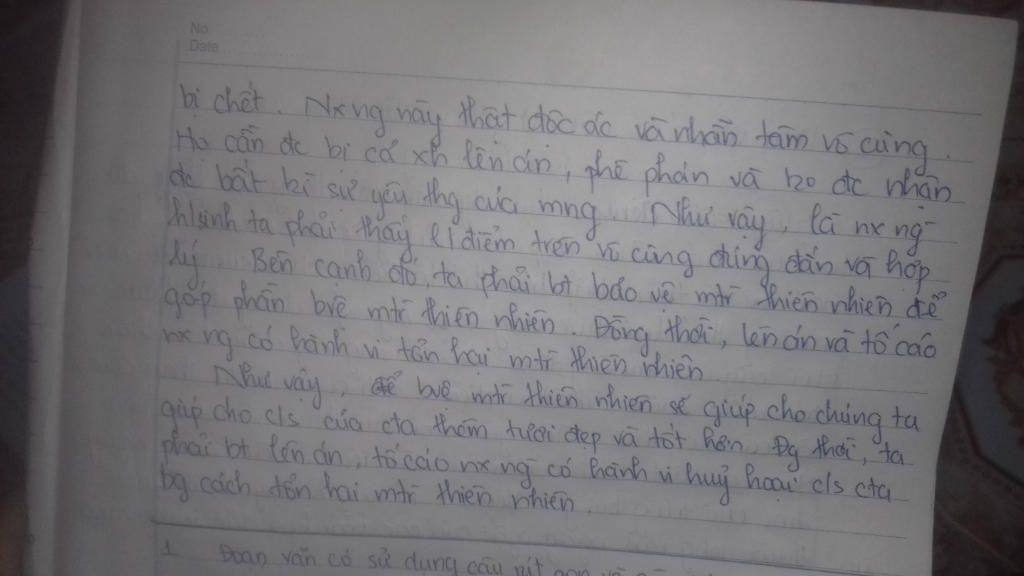 No
Date
bị chết. Nx ng này thật độc ác và nhẫn tâm vô cùng.
Họ cần đc bị cả xh lên án, phê phán và ko đc nhận
đc bất kì sự yêu thg của mng. Như vậy, là nx ng
hsinh ta phải thấy điểm trên vô cùng đúng đắn và hợp
lý. Bên cạnh đó, ta phải bt bảo vệ mtr thiên nhiên để
góp phần bvệ mtr thiên nhiên. Đồng thời, lên án và tố cáo
nx ng có hành vi tổn hại mtr thiên nhiên.
Như vậy, để bvệ mtr thiên nhiên sẽ giúp cho chúng ta
giúp cho c/s của cta thêm tươi đẹp và tốt hơn. Đg thời, ta
phải bt lên án, tố cáo nx ng có hành vi huỷ hoại c/s cta
bg cách tổn hại mtr thiên nhiên.
1 Đoạn văn có sử dụng câu rút gọn